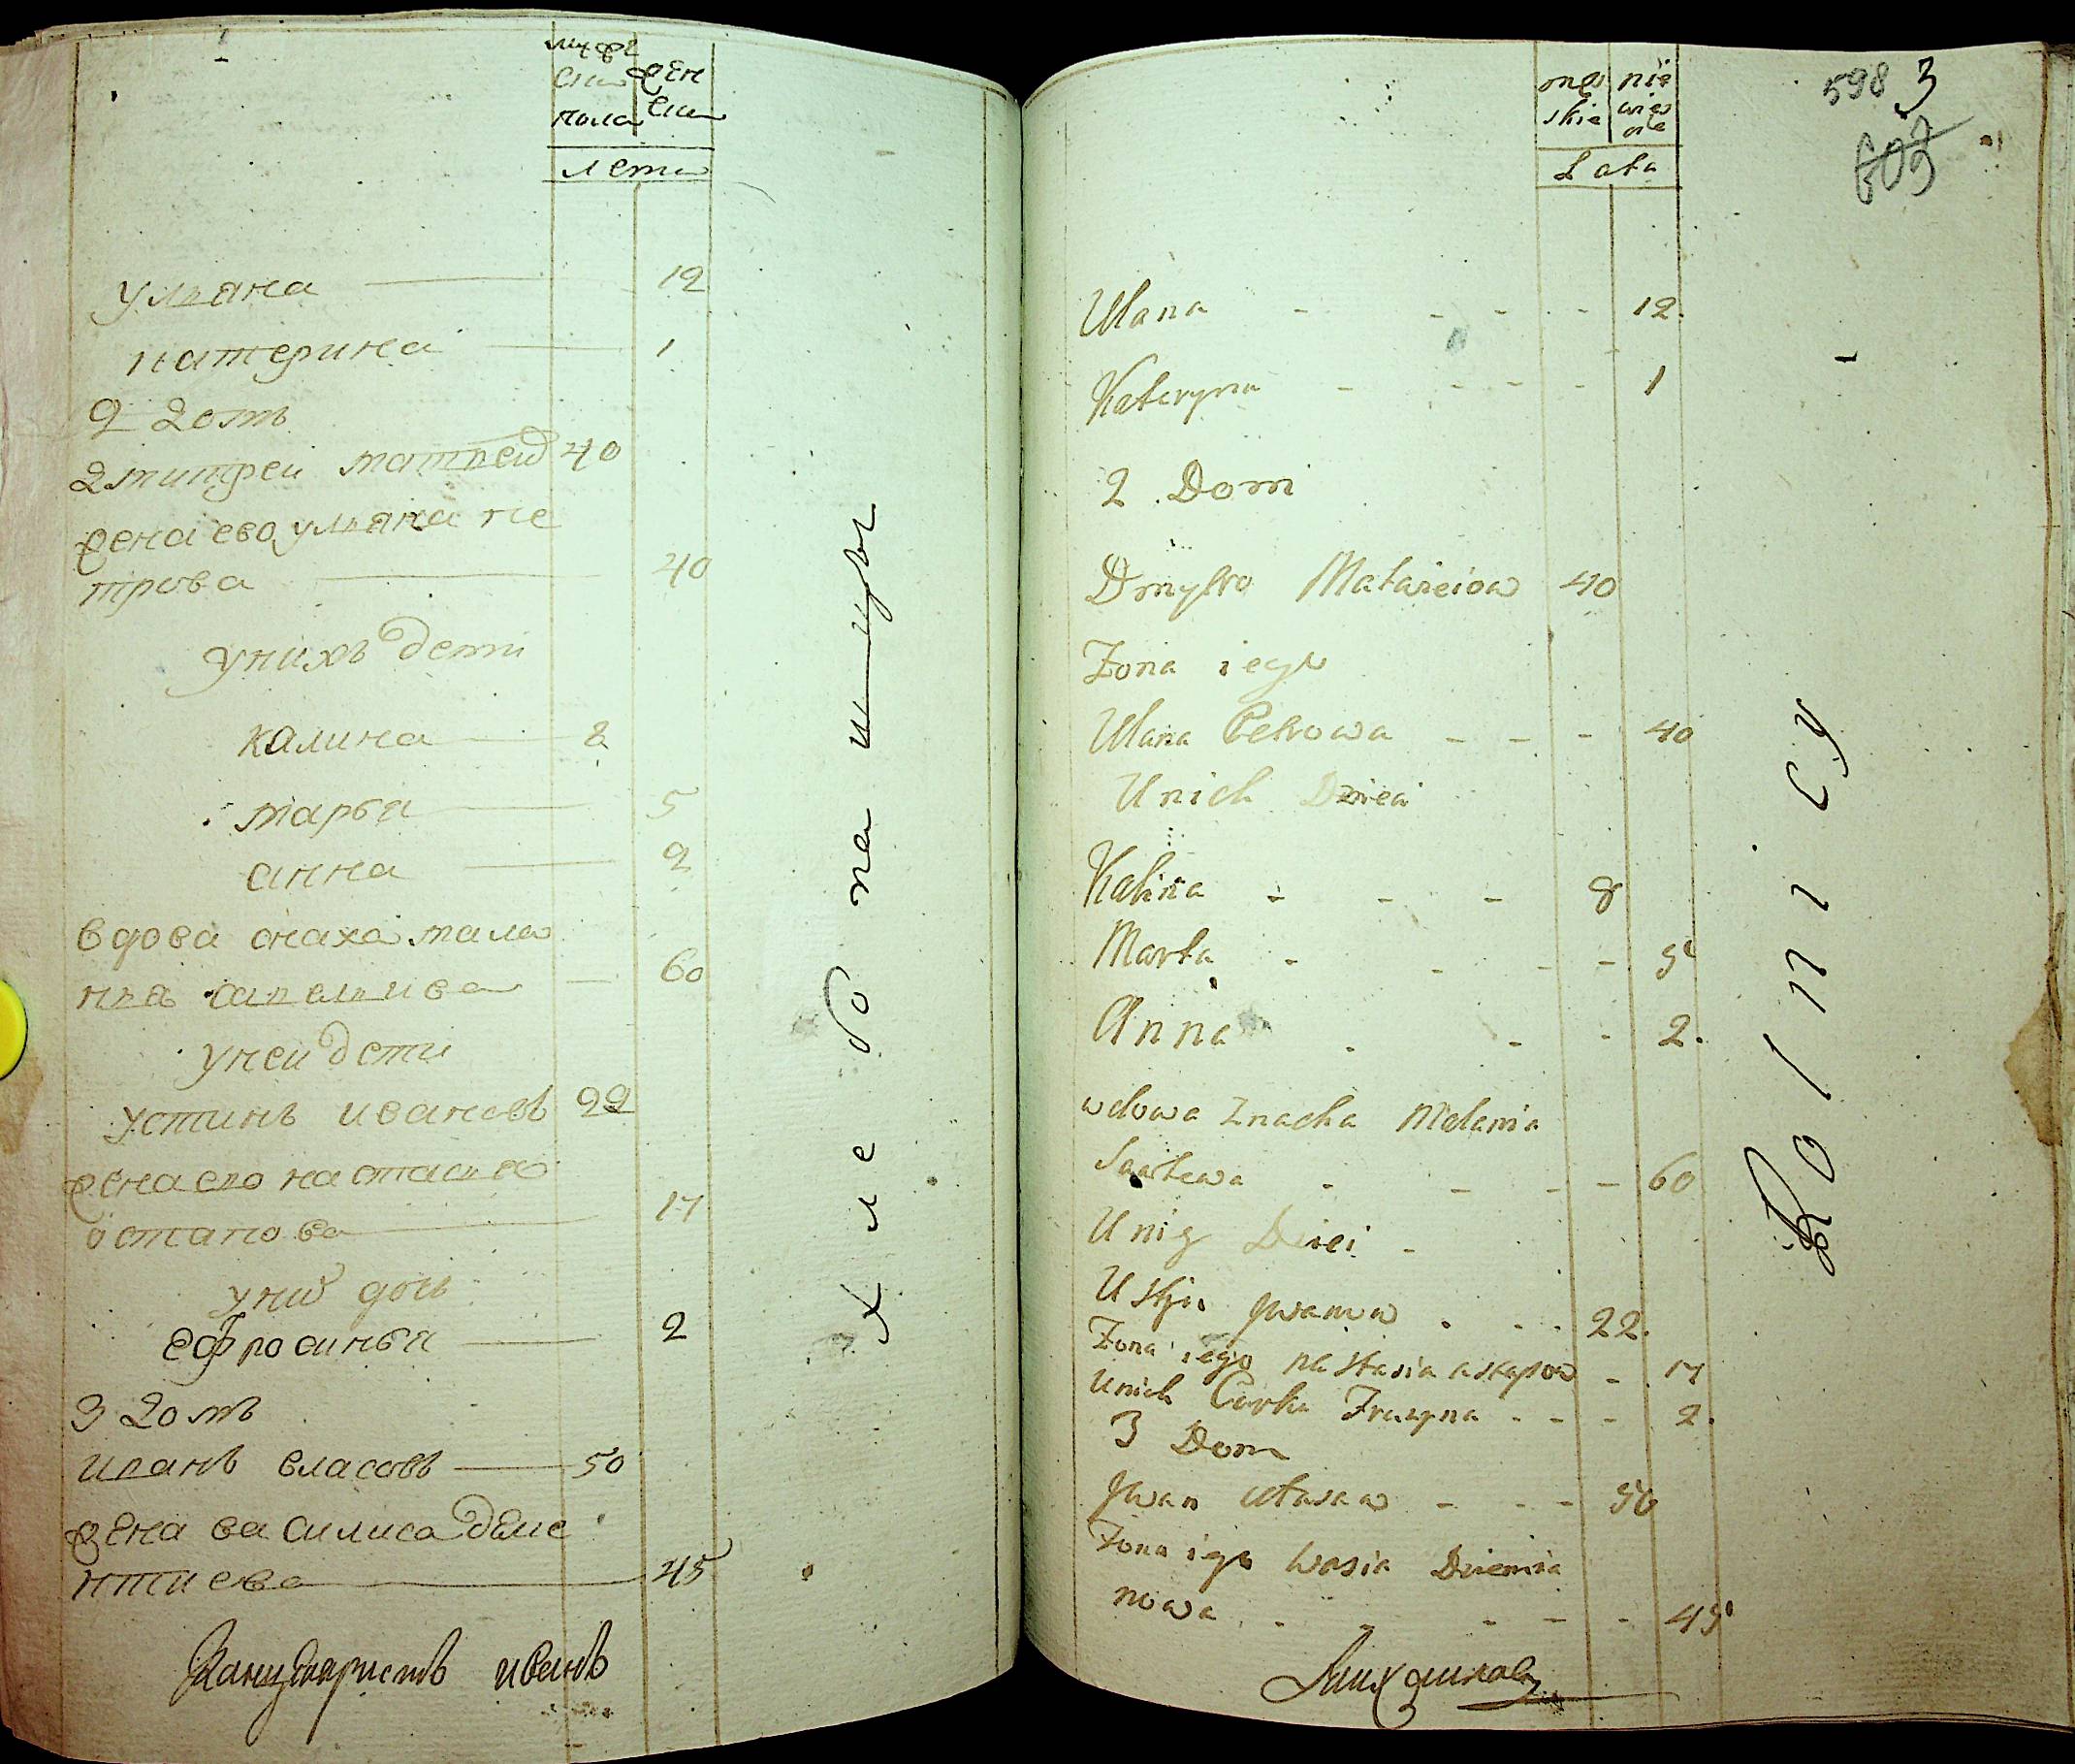 мужс
ска
пола
жен
ска
лета
ульяна 12
катерина 1
2 домъ
дмитреи матвеев 40
жена ево ульяна пе
трова 40
у нихъ дети
калина 8
марья 5
анна 2
вдова снаха мала
нья 60
у неи дети
устинъ ивановъ 22
жена ево настасья
остапова 17
у них дочь
ефросинья 2
3 домъ
иванъ власовъ 50
жена василиса деме
нтиева 45
Канцеляристъ иванъ
хлебопашцы
męs
skie
nie
wies
nie
Lata
598 3
609
Ulana 12.
Kateryna 1
2 Dom
Dmytro Matwieiow 40
Zona iego
Ulana Petrowa 40
Unich Dzieci
Kalina 8
Marta 5
Anna 2.
wdowa Znacha Melania
60
Unig Dziei
Ustjn Jwanow 22.
Zona iego nastasia astapow 17
Unich Corka Frasyna 2.
3 Dom
Jwan Wlasaw 50
Zona igo Wasia Dziemia
nowa 45
Rolnicy